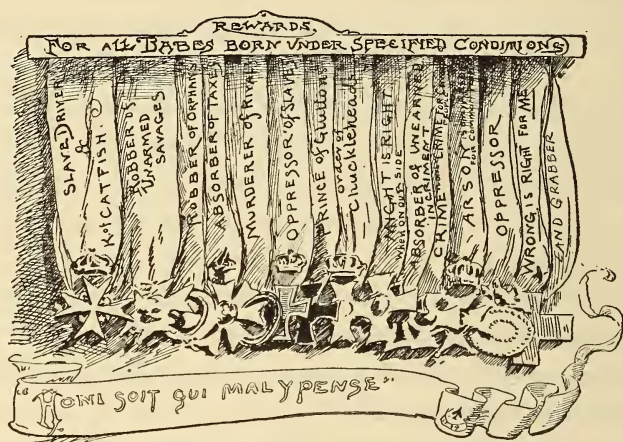 REWARDS.
FOR ALL BABES BORN UNDER SPECIFIED CONDITIONS
SLAVE DRIVER
&
K of CATFISH.
ROBBER OF
UNARMED
SAVAGES
ROBBER OF ORPHANS
ABSORBER OF TAXES
MURDERER OF RIVAL
OPPRESSOR OF SLAVES
PRINCE OF
Order of
Chuckleheads
MIGHT IS RIGHT
WHEN ON OUR SIDE
ABSORBER OF UNEARNED
INCRIMENT
CRIME
CRIME
ARSON
FOR
OPPRESSOR
WRONG IS RIGHT FOR ME
LAND GRABBER
"HONI SOIT QUI MAL Y PENSE"